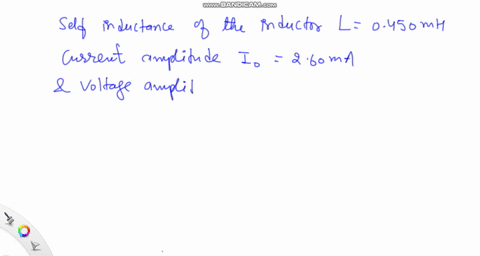 WWW.BANDICAM.COM
Self inductance of the inductor L = 0.450 mH
Current amplitude I₀ = 2.60 mA
& Voltage ampli